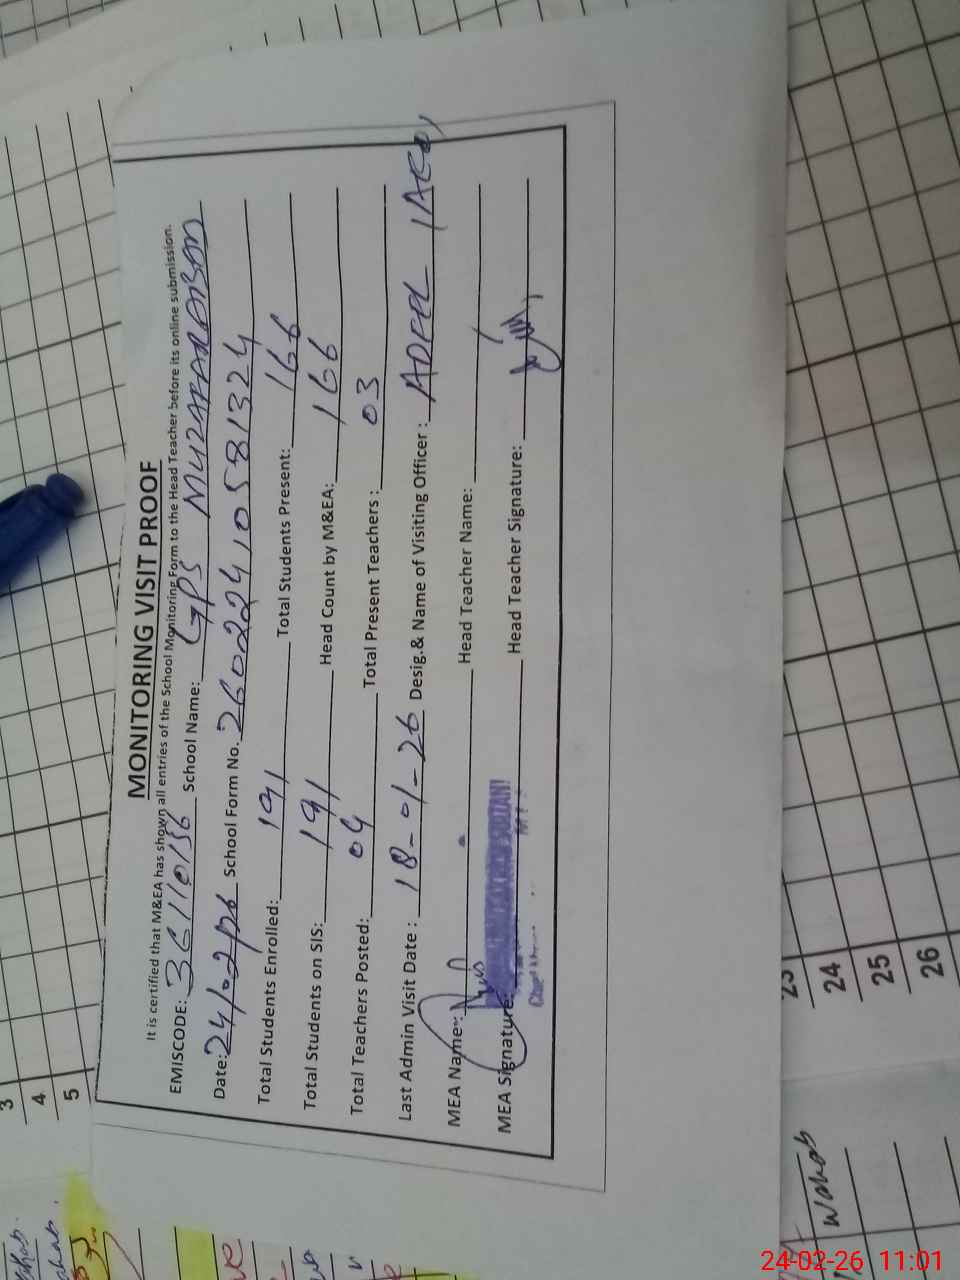 MONITORING VISIT PROOF
It is certified that M&EA has shown all entries of the School Monitoring Form to the Head Teacher before its online submission.
EMISCODE: 36110156 School Name: GPS MUZAFARABAD
Date: 24-02-26 School Form No. 26022410581324
Total Students Enrolled: 191 Total Students Present: 166
Total Students on SIS: 191 Head Count by M&EA: 166
Total Teachers Posted: 04 Total Present Teachers: 03
Last Admin Visit Date: 18-01-26 Desig.& Name of Visiting Officer: ADEEL
MEA Name: Head Teacher Name:
MEA Signature: Head Teacher Signature:
3
4
5
24
25
26
Wahab
24-02-26 11:01